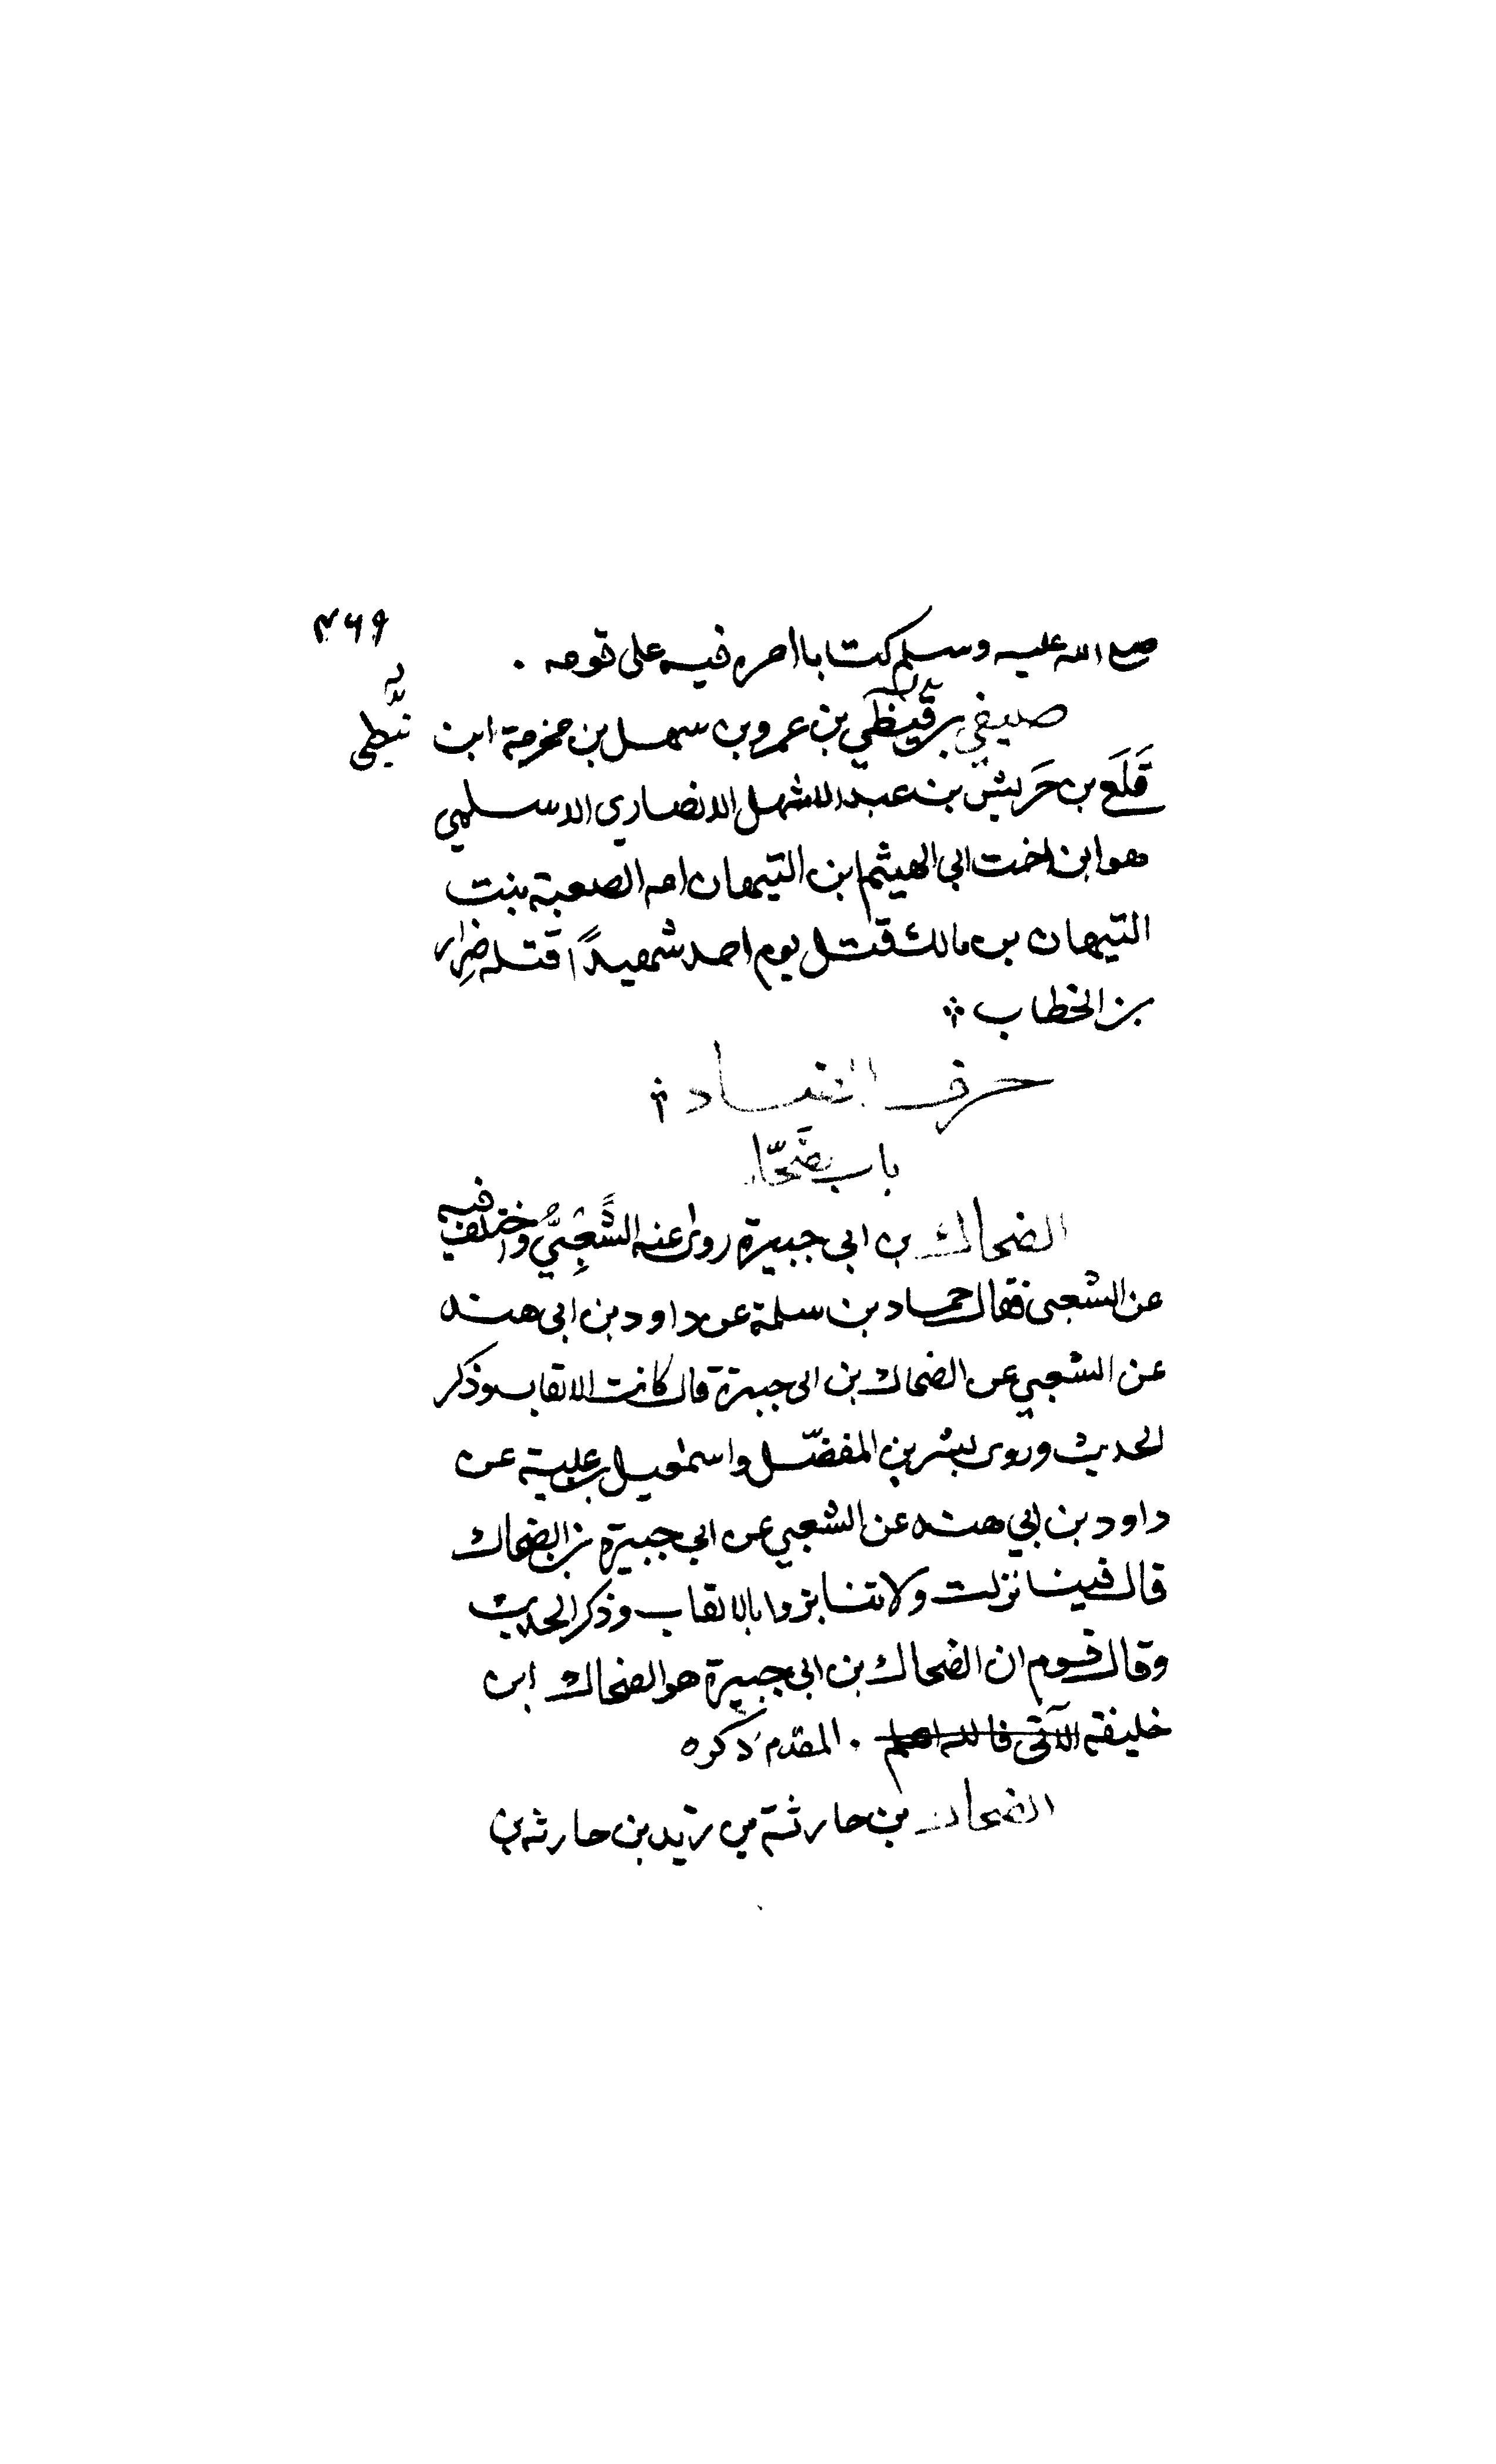 ٤٦٩
صلع الله عليه وسلم كتابا امره فيه على قومه .
صيفي بن قَيظي بن عمرو بن سهل بن مخرمة ابن
قَلَع بن حَريش بن عبد الاشهل الانصاري الاسلمي
هو ابن اخت ابي الهيثم ابن التيهان امه الصعبة بنت
التيهان بن مالك قتل يوم احد شهيدًا قتله ضِرار
بن الخطاب
حرف الضاد
باب ضحّا
الضحاك بن ابي جبيرة روى عنه الشَّعبِيُّ واختلف فيه
عن الشعبي فقال حماد بن سلمة عن داود بن ابي هند
عن الشعبي عن الضحاك بن ابي جبيرة قال كانت الالقاب وذكر
الحديث وروى بشر بن المفضّل واسمعيل بن علية عن
داود بن ابي هند عن الشعبي عن ابي جبيرة بن الضحاك
قال فينا نزلت ولا تنابزوا بالالقاب وذكر الحديث
وقال قوم ان الضحاك بن ابي جبيرة هو الضحاك ابن
خليفة الآتى فالله اعلم . المقدم ذكره
الضحاك بن حارثة بن زيد بن حارثه بن